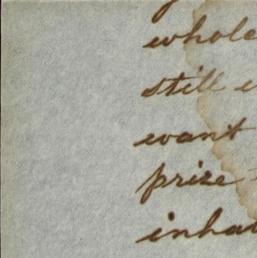 whole
still
want
prize